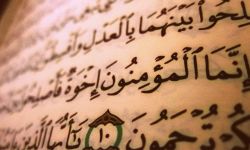 لِحُوا۟ بَيْنَهُمَا بِٱلْعَدْلِ وَأَقْسِ
إِنَّمَا ٱلْمُؤْمِنُونَ إِخْوَةٌ فَأَصْلِحُوا۟
تُرْحَمُونَ ١٠ يَٰٓأَيُّهَا ٱلَّذِينَ